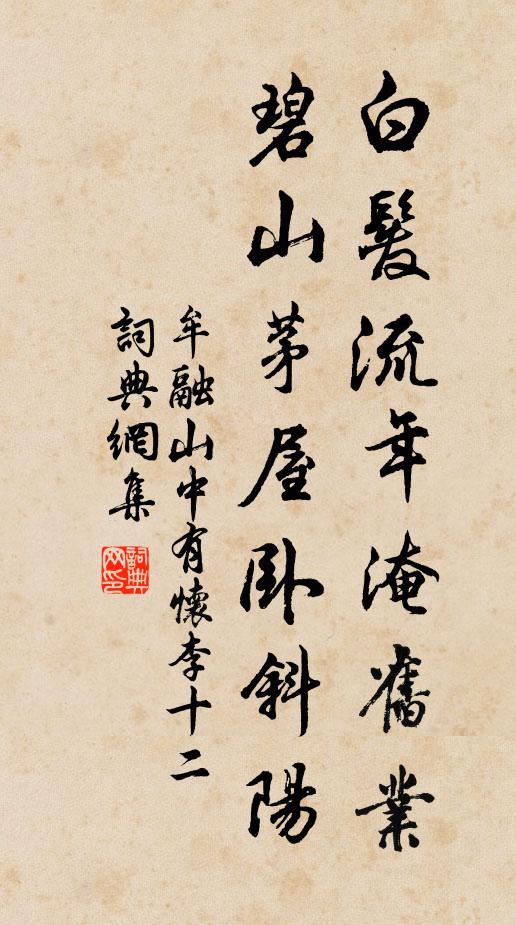 白髮流年淹舊業
碧山茅屋臥斜陽
牟融山中有懷李十二
詞典網集
詞典網印